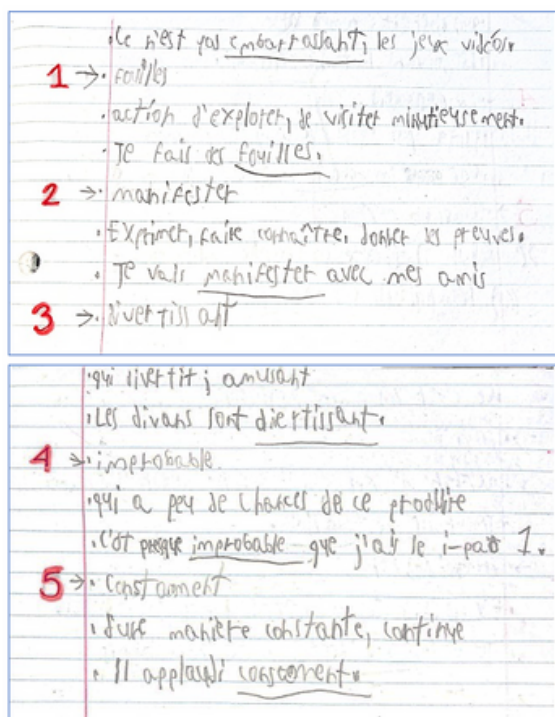 ·Ce n'est pas embarrassant, les jeux vidéos.
1 →· fouilles
·action d'explorer, de visiter minutieusement.
·Je fais des fouilles.
2 →· manifester
·Exprimer, faire connaître, donner des preuves.
·Je vais manifester avec mes amis
3 →· divertissant
·qui divertit ; amusant
·Les divans sont diertissant.
4 →· improbable
·qui a peu de chances de ce produire
·C'ét presque improbable que j'ai le i-pad 1.
5 →· Constamment
·d'une manière constante, continue
·Il applaudi consoment.